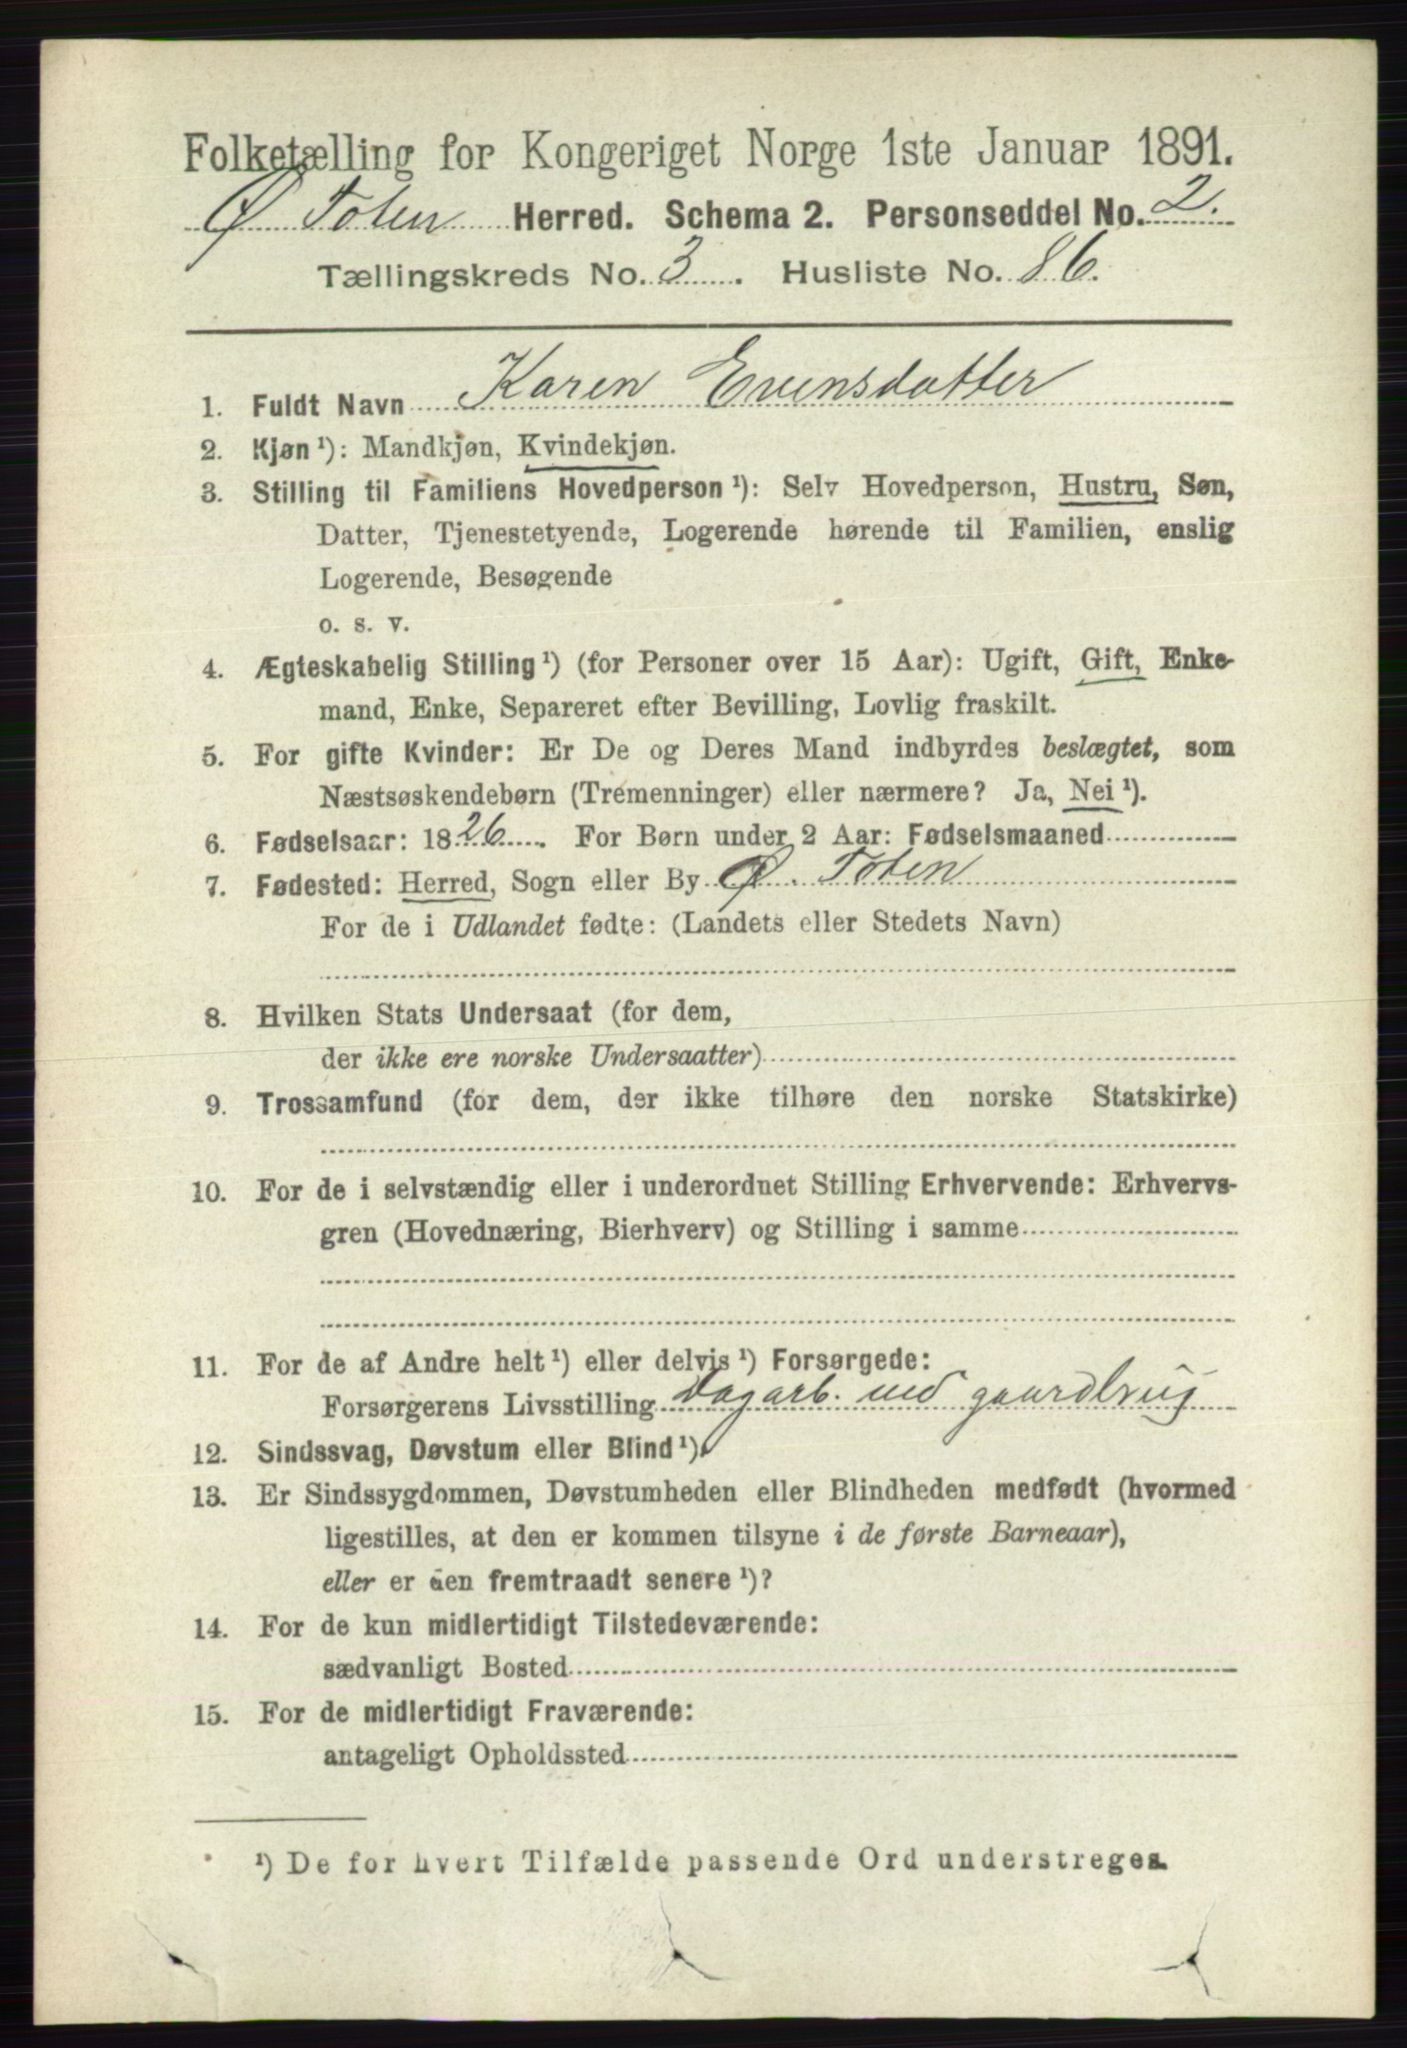 Folketælling for Kongeriget Norge 1ste Januar 1891.
Ø Toten Herred. Schema 2. Personseddel No. 2.
Tællingskreds No. 3. Husliste No. 86.
1. Fuldt Navn Karen Evensdatter
2. Kjøn ¹): Mandkjøn, Kvindekjøn.
3. Stilling til Familiens Hovedperson ¹): Selv Hovedperson, Hustru, Søn,
Datter, Tjenestetyende, Logerende hørende til Familien, enslig
Logerende, Besøgende
o. s. v.
4. Ægteskabelig Stilling ¹) (for Personer over 15 Aar): Ugift, Gift, Enke-
mand, Enke, Separeret efter Bevilling, Lovlig fraskilt.
5. For gifte Kvinder: Er De og Deres Mand indbyrdes beslægtet, som
Næstsøskendebørn (Tremenninger) eller nærmere? Ja, Nei ¹).
6. Fødselsaar: 1826. For Børn under 2 Aar: Fødselsmaaned
7. Fødested: Herred, Sogn eller By Ø. Toten
For de i Udlandet fødte: (Landets eller Stedets Navn)
8. Hvilken Stats Undersaat (for dem,
der ikke ere norske Undersaatter)
9. Trossamfund (for dem, der ikke tilhøre den norske Statskirke)
10. For de i selvstændig eller i underordnet Stilling Erhvervende: Erhvervs-
gren (Hovednæring, Bierhverv) og Stilling i samme
11. For de af Andre helt ¹) eller delvis ¹) Forsørgede:
Forsørgerens Livsstilling Dagarb. ved gaardbrug
12. Sindssvag, Døvstum eller Blind ¹).
13. Er Sindssygdommen, Døvstumheden eller Blindheden medfødt (hvormed
ligestilles, at den er kommen tilsyne i de første Barneaar),
eller er den fremtraadt senere ¹)?
14. For de kun midlertidigt Tilstedeværende:
sædvanligt Bosted
15. For de midlertidigt Fraværende:
antageligt Opholdssted
¹) De for hvert Tilfælde passende Ord understreges.